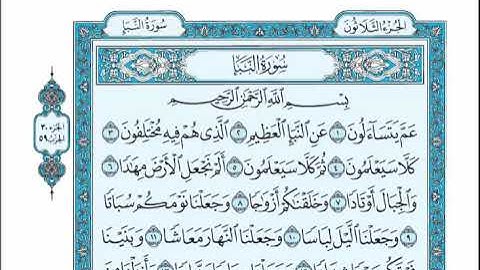 سُورَةُ النَّبَإِ
الجُزْءُ الثَّلَاثُونَ
سُورَةُ النَّبَإِ
بِسْمِ اللَّهِ الرَّحْمَٰنِ الرَّحِيمِ
عَمَّ يَتَسَاءَلُونَ ١ عَنِ النَّبَإِ الْعَظِيمِ ٢ الَّذِي هُمْ فِيهِ مُخْتَلِفُونَ ٣
كَلَّا سَيَعْلَمُونَ ٤ ثُمَّ كَلَّا سَيَعْلَمُونَ ٥ أَلَمْ نَجْعَلِ الْأَرْضَ مِهَادًا ٦
وَالْجِبَالَ أَوْتَادًا ٧ وَخَلَقْنَاكُمْ أَزْوَاجًا ٨ وَجَعَلْنَا نَوْمَكُمْ سُبَاتًا
٩ وَجَعَلْنَا اللَّيْلَ لِبَاسًا ١٠ وَجَعَلْنَا النَّهَارَ مَعَاشًا ١١ وَبَنَيْنَا
الجزء ٣٠
الحزب ٥٩